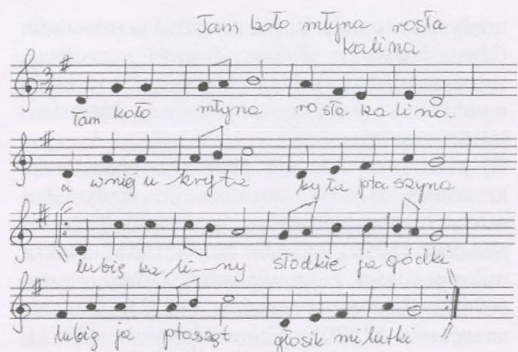 Tam koło młyna rosła
kalina
3/4
Tam koło młyna rosła kalina.
a w niej ukryta była ptaszyna
lubię kaliny słodkie jagódki
lubię ja ptasząt głosik milutki